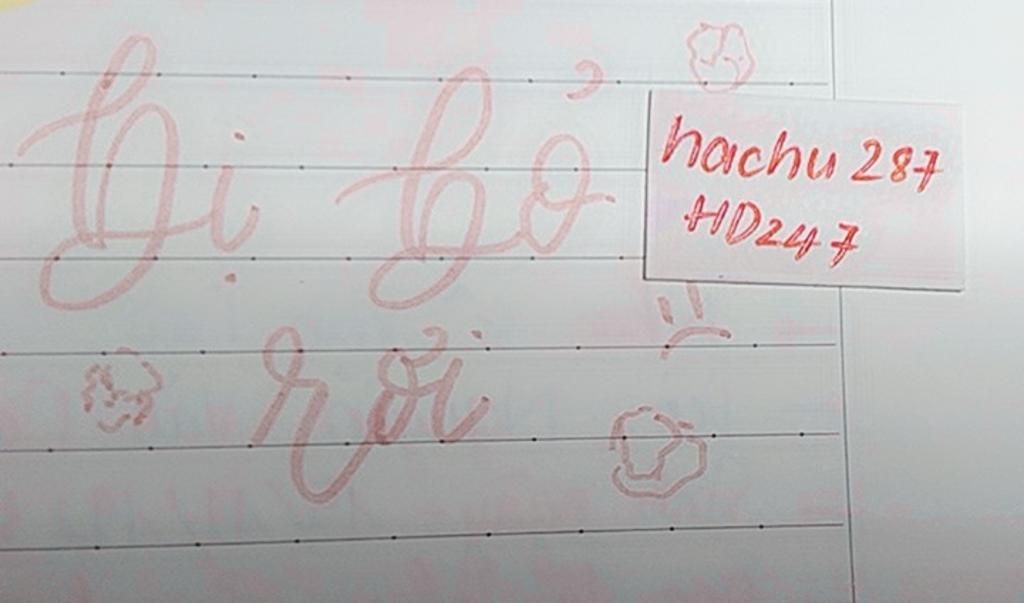 bị bỏ
rơi
hachu 287
HD247
:(